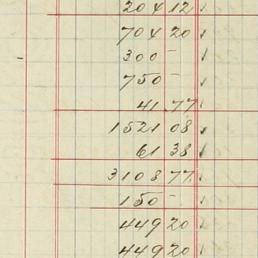 204 12
704 20
300 -
750 -
41 77
1521 08
61 38
3108 77
150 -
449 20
449 20